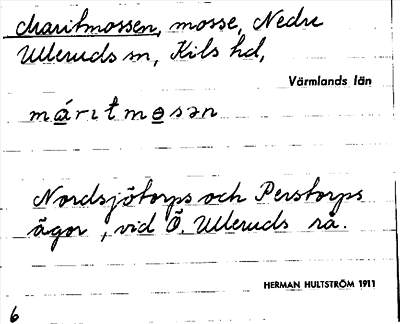 Maritmossen, mosse, Nedre
Ulleruds sn, Kils hd,
Värmlands län
máritmosən
Nordsjötorps och Perstorps
ägor, vid Ö. Ulleruds rå.
HERMAN HULTSTRÖM 1911
6